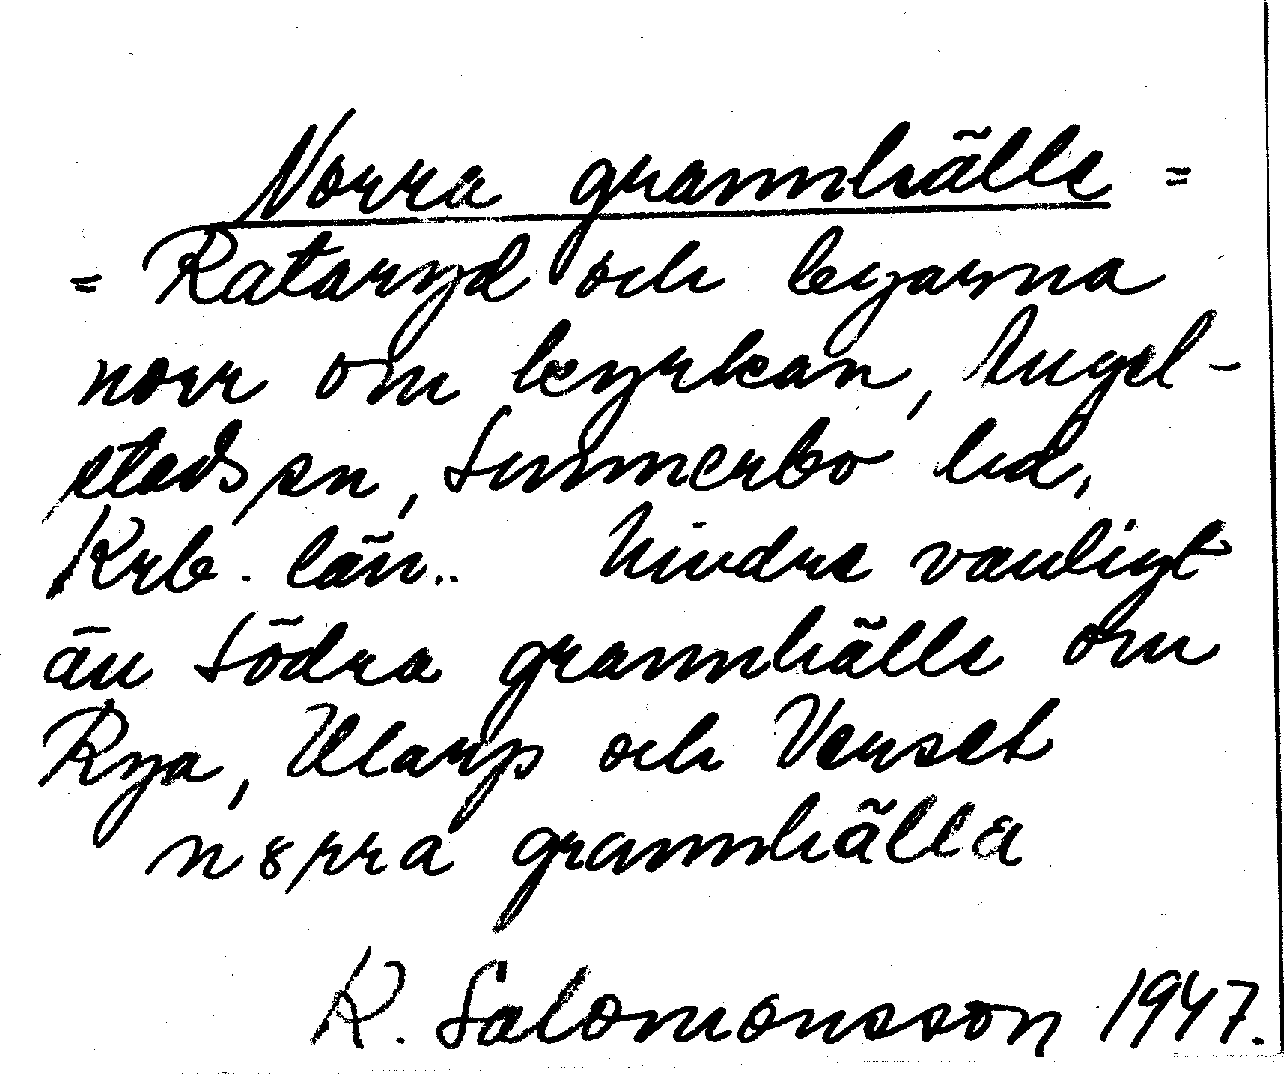 Norra grannhälle =
= Rataryd och byarna
norr om kyrkan, Angel-
stads sn, Sunnerbo hd,
Krb. län.. Mindre vanligt
än Södra grannhälle om
Rya, Ularp och Verset
norra grannhälla
R. Salomonsson 1947.